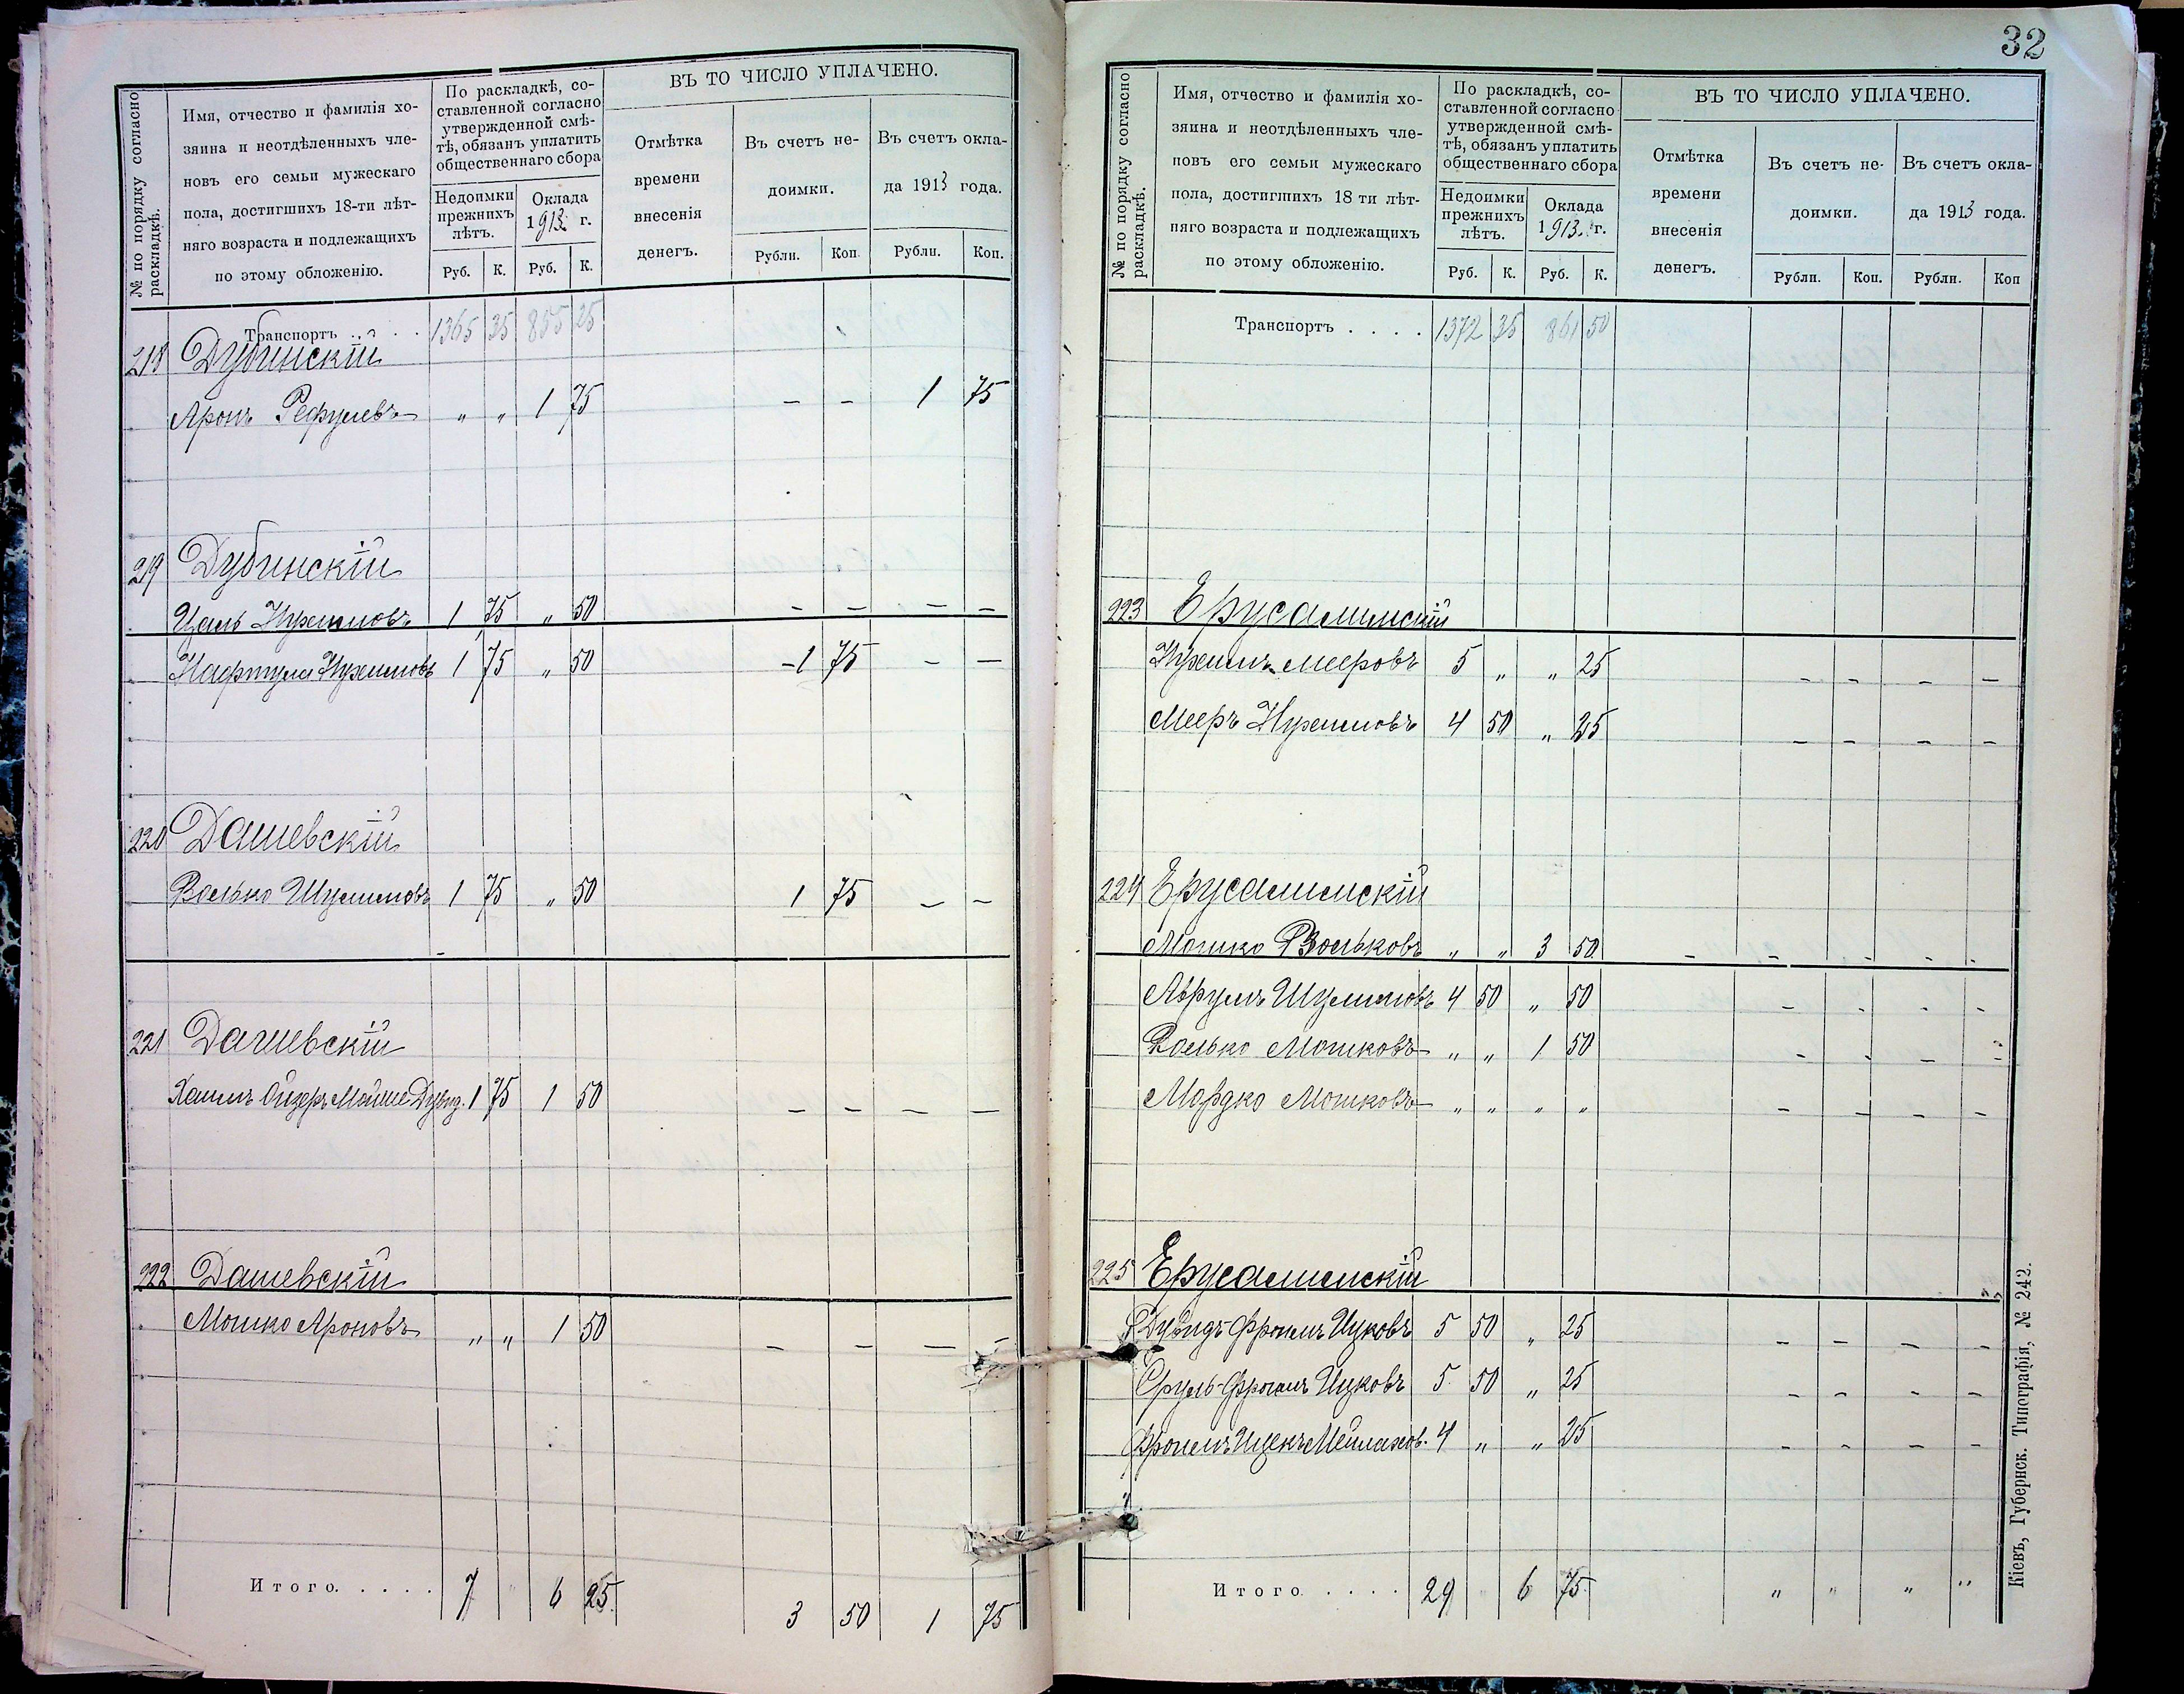 № по порядку согласно раскладкѣ.
Имя, отчество и фамилія хозяина и неотдѣленныхъ членовъ его семьи мужескаго пола, достигшихъ 18-ти лѣтняго возраста и подлежащихъ по этому обложенію.
По раскладкѣ, составленной согласно утвержденной смѣтѣ, обязанъ уплатить общественнаго сбора
Недоимки прежнихъ лѣтъ.
Оклада 1913 г.
Руб. К. Руб. К.
ВЪ ТО ЧИСЛО УПЛАЧЕНО.
Отмѣтка времени внесенія денегъ.
Въ счетъ недоимки.
Въ счетъ оклада 1913 года.
Рубли. Коп. Рубли. Коп.
Транспортъ . . . . 1365 35 855 25
218 Дубинскій
Аронъ „ „ 1 75 – – 1 75
219 Дубинскій
1 75 „ 50 – – – –
Нафтула 1 75 „ 50 – 1 75 – –
220 Дашевскій
Волько Шулимовъ 1 75 „ 50 1 75 – –
221 Дашевскій
Хаимъ Ойзеръ Мойше Дувид. 1 75 1 50 – – – –
222 Дашевскій
Мошко Ароновъ „ „ 1 50 – – – –
Итого. . . . . 7 „ 6 25 3 50 1 75
32
№ по порядку согласно раскладкѣ.
Имя, отчество и фамилія хозяина и неотдѣленныхъ членовъ его семьи мужескаго пола, достигшихъ 18 ти лѣтняго возраста и подлежащихъ по этому обложенію.
По раскладкѣ, составленной согласно утвержденной смѣтѣ, обязанъ уплатить общественнаго сбора
Недоимки прежнихъ лѣтъ.
Оклада 1913. г.
Руб. К. Руб. К.
ВЪ ТО ЧИСЛО УПЛАЧЕНО.
Отмѣтка времени внесенія денегъ.
Въ счетъ недоимки.
Въ счетъ оклада 1913 года.
Рубли. Коп. Рубли. Коп
Транспортъ . . . . 1372 35 861 50
223 Ерусалимскій
Мееровъ 5 „ „ 25 – – – –
Мееръ 4 50 „ 25 – – – –
224 Ерусалимскій
Мошко Вольковъ „ „ 3 50 – – – – –
Аврумъ Шулимовъ 4 50 „ 50 – – – –
Волько Мошковъ „ „ 1 50 – – – –
Мордко Мошковъ „ „ „ „ – – – –
225 Ерусалимскій
Дувидъ-Фроимъ Ицковъ 5 50 „ 25 – – – –
Сруль-Фроимъ Ицковъ 5 50 „ 25 – – – –
Фроимъ Ицекъ Мейлахов. 4 „ „ 25 – – – –
Итого . . . . 29 „ 6 75 „ „ „ „
Кіевъ, Губернск. Типографія, № 242.